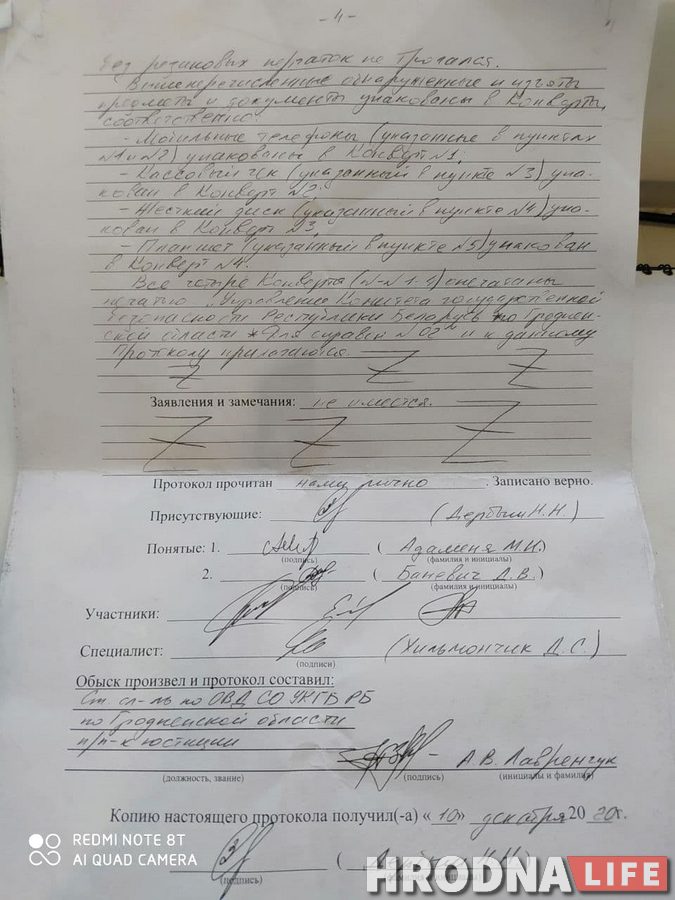 - 4 -
без резиновых перчаток не трогался.
Вышеперечисленные обнаруженные и изъяты
предметы и документы упакованы в Конверты,
соответственно:
- Мобильные телефоны (указанные в пунктах
№1 и №2) упакованы в Конверт №1,
- Кассовый чек (указанный в пункте №3) упа-
кован в Конверт №2;
- Жесткий диск (указанный в пункте №4) упа-
кован в Конверт №3,
- Планшет (указанный в пункте №5) упакован
в Конверт №4.
Все четыре Конверта опечатаны
печатью "Управление Комитета государственной
безопасности Республики Беларусь по Гроднен-
ской области * Для справок №02" и к данному
протоколу прилагаются.
Заявления и замечания: не имеется.
Протокол прочитан нами лично. Записано верно.
Присутствующие: (Дербыш Н.Н.)
Понятые: 1. (Адаменя М.И.)
(подпись) (фамилия и инициалы)
2. (Баневич Д.В.)
(подпись) (фамилия и инициалы)
Участники:
Специалист: (Хильмончик Д.С.)
(подписи)
Обыск произвел и протокол составил:
Ст. сл-ль по ОВД СО УКГБ РБ
по Гродненской области
п/п-к юстиции
А.В. Лавренчук
(должность, звание) (подпись) (инициалы и фамилия)
Копию настоящего протокола получил(-а) «10» декабря 2020г.
(подпись)
REDMI NOTE 8T
AI QUAD CAMERA
HRODNA LIFE